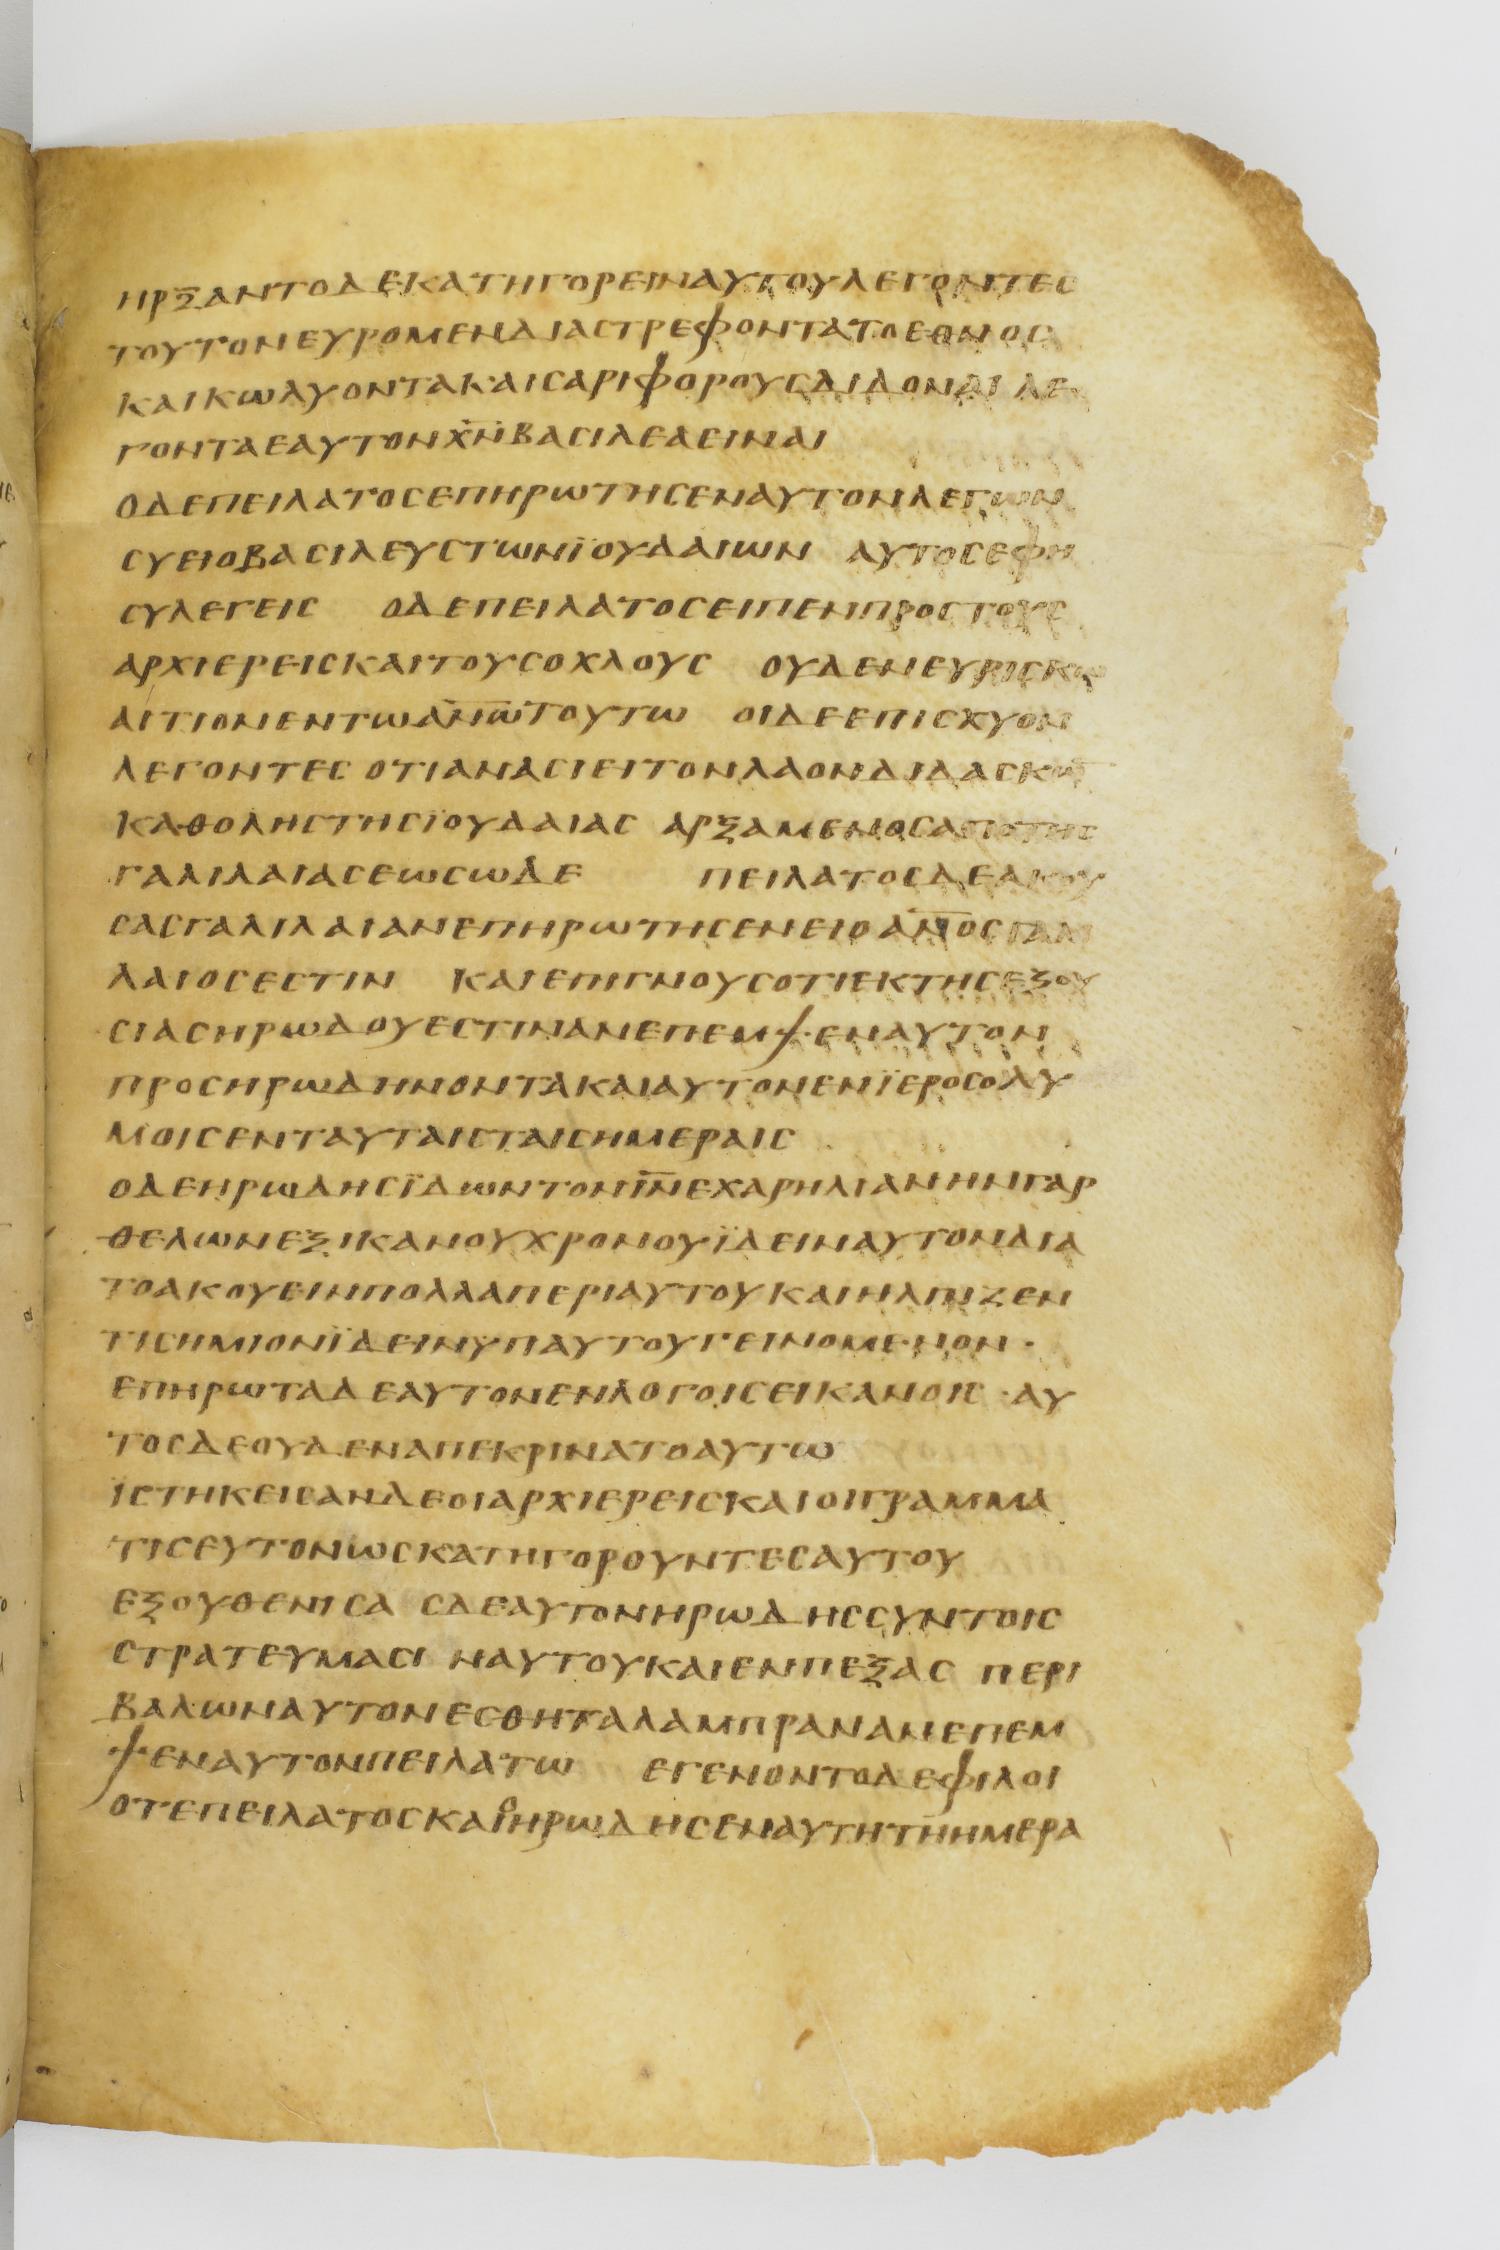 ηρξαντοδεκατηγορειναυτουλεγοντες
τουτονευρομενδιαστρεφοντατοεθνος
καικωλυοντακαισαριφορουςδιδοναιλε
γονταεαυτονχ̅ν̅βασιλεαειναι
οδεπειλατοςεπηρωτησεναυτονλεγων
συειοβασιλευςτωνϊουδαιων αυτοςεφη
συλεγεις οδεπειλατοςειπενπροςτους
αρχιερειςκαιτουςοχλους ουδενευρισκω
αιτιονεντωα̅ν̅ω̅τουτω οιδεεπισχυον
λεγοντες οτιανασιειτονλαονδιδασκω̅
καθοληςτηςϊουδαιας αρξαμενοςαποτης
γαλιλαιαςεωςωδε πειλατοςδεακου
σαςγαλιλαιανεπηρωτησενειοα̅ν̅ο̅ςγαλι
λαιοςεστιν καιεπιγνουςοτιεκτηςεξου
σιαςηρωδουεστινανεπεμψεναυτον
προςηρωδηνοντακαιαυτονενϊεροσολυ
μοιςενταυταιςταιςημεραις
οδεηρωδηςϊδωντονι̅ν̅εχαρηλιανηνγαρ
θελωνεξικανουχρονουϊδειναυτονδια
τοακουεινπολλαπεριαυτουκαιηλπιζεν
τισημιονϊδεινυπαυτουγεινομενον·
επηρωταδεαυτονενλογοιςεικανοις·αυ
τοςδεουδεναπεκρινατοαυτω
ϊστηκεισανδεοιαρχιερειςκαιοιγραμμα
τιςευτονωςκατηγορουντεςαυτου
εξουθενισα ςδεαυτονηρωδηςσυντοις
στρατευμασι ναυτουκαιενπεξας περι
βαλωναυτονεσθηταλαμπρανανεπεμ
ψεναυτονπειλατω εγενοντοδεφιλοι
οτεπειλατοςκαιοηρωδηςεναυτητηημερα